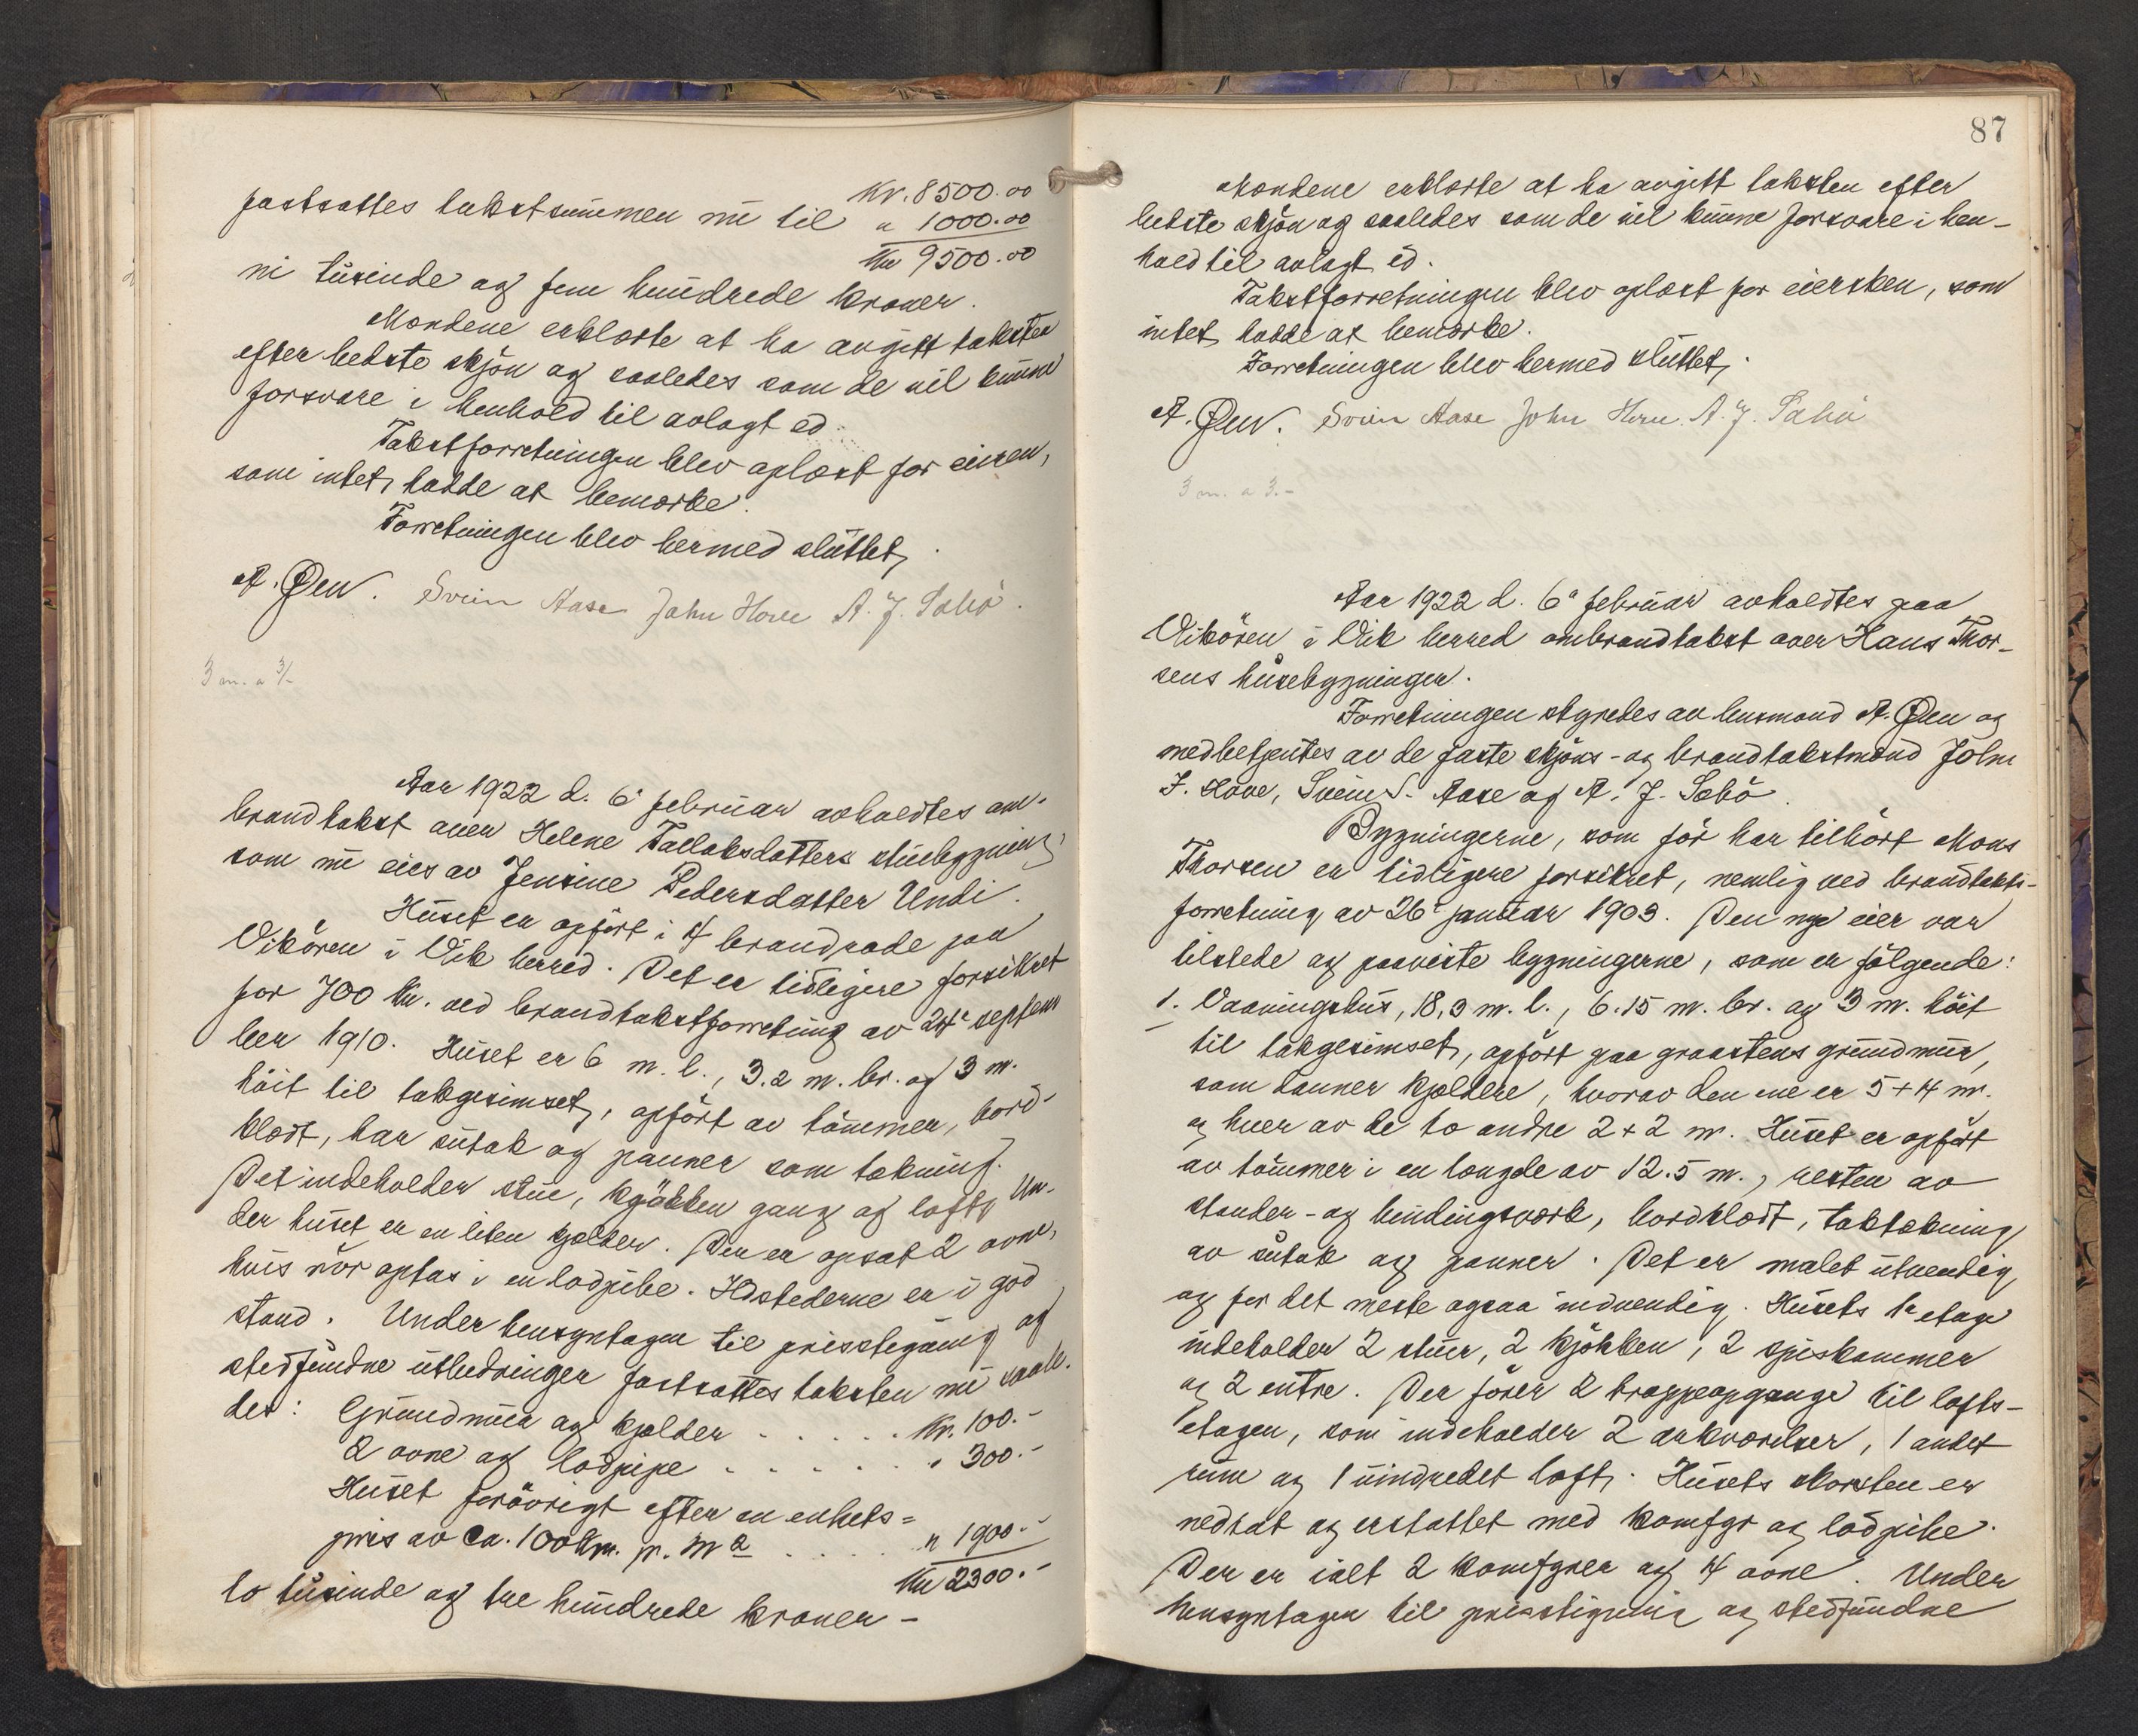 Kr. 8500.00
fastsattes takstsummen nu til " 1000.00
Kr 9500.00
ni tusinde og fem hundrede kroner.
Mændene erklærte at ha avgitt taksten
efter bedste skjön og saaledes som de vil kunne
forsvare i henhold til avlagt ed.
Takstforretningen blev oplæst for eieren,
som intet hadde at bemærke.
Forretningen blev hermed sluttet.
A. Øen. Svein Aase John Hove A. J. Sæbö.
3 m. a 3/-
Aar 1922 d. 6te februar avholdtes om-
brandtakst over Helene Tallaksdatters stuebygning
som nu eies av Jensine Pedersdatter Undi.
Huset er opfört i 4 brandrode paa
Vikören i Vik herred. Det er tidligere forsikret
for 700 kr. ved brandtakstforretning av 24de septem
ber 1910. Huset er 6 m. l., 3.2 m. br. og 3 m.
höit til takgesimset, opfört av tömmer, bord-
klædt, har sutak og panner som tækning.
Det indeholder stue, kjökken gang og loft. Un-
der huset er en liten kjælder. Der er opsat 2 ovne,
hvis rör optas i en lodpibe. Ildstederne er i god
stand. Under hensyntagen til prisstegning og
stedfundne utbedringer fastsattes taksten nu saale-
des: Grundmur og kjælder . . . . . Kr. 100.-
2 ovne og lodpipe . . . . . . " 300.-
Huset forövrigt efter en enhets=
pris av ca. 100 kr. pr. m2 . . . . " 1900.-
Kr 2300.-
to tusinde og tre hundrede kroner -
87
Mændene erklærte at ha avgitt taksten efter
bedste skjön og saaledes som de vil kunne forsvare i hen-
hold til avlagt ed.
Takstforretningen blev oplæst for eiersken, som
intet hadde at bemærke.
Forretningen blev hermed sluttet.
A. Øen. Svein Aase John Hove A. J. Sæbö
3 m. a 3.-
Aar 1922 d. 6te februar avholdtes paa
Vikören i Vik herred ombrandtakst over Hans Thor-
sens husebygninger.
Forretningen styredes av lensmand A. Øen og
medbetjentes av de faste skjöns- og brandtakstmænd John
J. Hove, Svein S. Aase og A. J. Sæbö.
Bygningerne, som för har tilhört Mons
Thorsen er tidligere forsikret, nemlig ved brandtakst-
forretning av 26de januar 1903. Den nye eier var
tilstede og paaviste bygningerne, som er fölgende:
1. Vaaningshus, 18,3 m. l., 6.15 m. br. og 3 m. höit
til takgesimset, opfört paa graastens grundmur,
som danner kjældere, hvorav den ene er 5+4 m.
og hver av de to andre 2+2 m. Huset er opfört
av tömmer i en længde av 12.5 m., resten av
stender- og bindingsværk, bordklædt, taktækning
av sutak og panner. Det er malet utvendig
og for det meste ogsaa indvendig. Husets 1ste etage
indeholder 2 stuer, 2 kjökken, 2 spiskammer
og 2 entre. Der förer 2 trappeopgange til lofts-
etagen, som indeholder 2 arkværelser, 1 andet
rum og 1 uindredet loft. Husets skorsten er
nedtat og erstattet med komfyr og lodpibe.
Der er ialt 2 komfyrer og 4 ovne. Under
hensyntagen til prisstigning og stedfundne